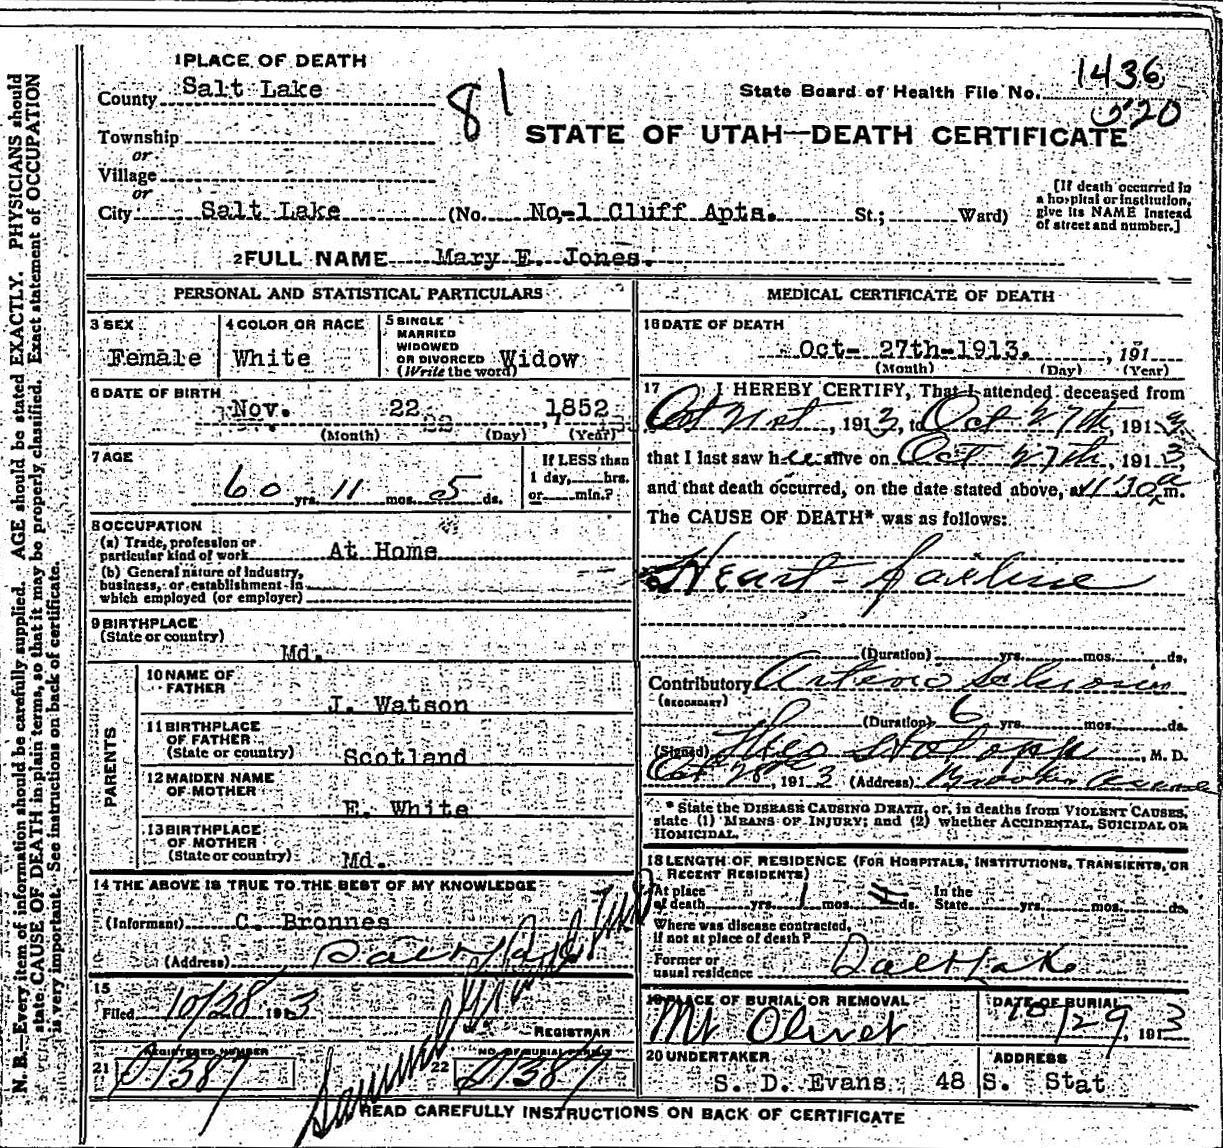 1 PLACE OF DEATH
County Salt Lake
Township
or
Village
or
City Salt Lake (No. No-1 Cluff Apts. St.; Ward)
81
State Board of Health File No. 1436
520
STATE OF UTAH—DEATH CERTIFICATE
[If death occurred in
a hospital or institution,
give its NAME instead
of street and number.]
2 FULL NAME Mary E. Jones.
PERSONAL AND STATISTICAL PARTICULARS
3 SEX
Female
4 COLOR OR RACE
White
5 SINGLE
MARRIED
WIDOWED
OR DIVORCED
(Write the word) Widow
6 DATE OF BIRTH
Nov. 22 , 1852
(Month) (Day) (Year)
7 AGE
60 yrs. 11 mos. 5 ds.
If LESS than
1 day, hrs.
or min.?
8 OCCUPATION
(a) Trade, profession or
particular kind of work At Home
(b) General nature of industry,
business, or establishment in
which employed (or employer)
9 BIRTHPLACE
(State or country)
Md.
PARENTS
10 NAME OF
FATHER
J. Watson
11 BIRTHPLACE
OF FATHER
(State or country) Scotland
12 MAIDEN NAME
OF MOTHER
E. White
13 BIRTHPLACE
OF MOTHER
(State or country) Md.
14 THE ABOVE IS TRUE TO THE BEST OF MY KNOWLEDGE
(Informant) C. Bronnes
(Address)
15
Filed 10/28 1913
REGISTRAR
REGISTERED NUMBER
21
22
MEDICAL CERTIFICATE OF DEATH
16 DATE OF DEATH
Oct- 27th-1913. , 191
(Month) (Day) (Year)
17 I HEREBY CERTIFY, That I attended deceased from
Oct 21st , 1913, to Oct 27th , 1913
that I last saw her alive on Oct 27th , 1913,
and that death occurred, on the date stated above, at 11:30 a m.
The CAUSE OF DEATH* was as follows:
Heart failure
(Duration) yrs. mos. ds.
Contributory Arterio Sclerosis
(SECONDARY)
(Duration) 6 yrs. mos. ds.
(Signed) , M. D.
Oct 28 , 1913 (Address)
* State the DISEASE CAUSING DEATH, or, in deaths from VIOLENT CAUSES,
state (1) MEANS OF INJURY; and (2) whether ACCIDENTAL, SUICIDAL OR
HOMICIDAL.
18 LENGTH OF RESIDENCE (FOR HOSPITALS, INSTITUTIONS, TRANSIENTS, OR
RECENT RESIDENTS)
At place
of death yrs. 1 mos. ds. In the
State yrs. mos. ds.
Where was disease contracted,
if not at place of death?
Former or
usual residence Salt Lake
19 PLACE OF BURIAL OR REMOVAL
Mt Olivet
DATE OF BURIAL
10/29 , 1913
20 UNDERTAKER
S. D. Evans
ADDRESS
48 S. Stat
READ CAREFULLY INSTRUCTIONS ON BACK OF CERTIFICATE
N. B.—Every item of information should be carefully supplied. AGE should be stated EXACTLY. PHYSICIANS should
state CAUSE OF DEATH in plain terms, so that it may be properly classified. Exact statement of OCCUPATION
is very important. See instructions on back of certificate.